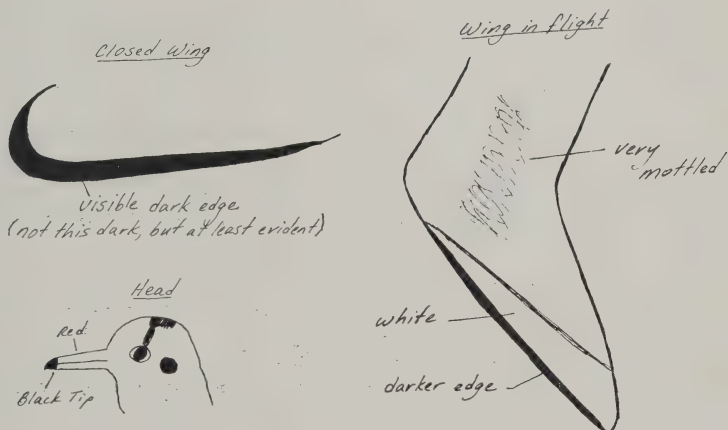 Closed Wing
visible dark edge
(not this dark, but at least evident)
Head
Red
Black Tip
Wing in flight
very
mottled
white
darker edge